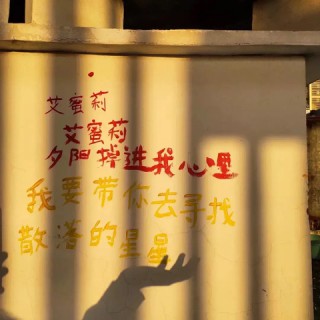 艾蜜莉
艾蜜莉
夕阳掉进我心里
我要带你去寻找
散落的星星